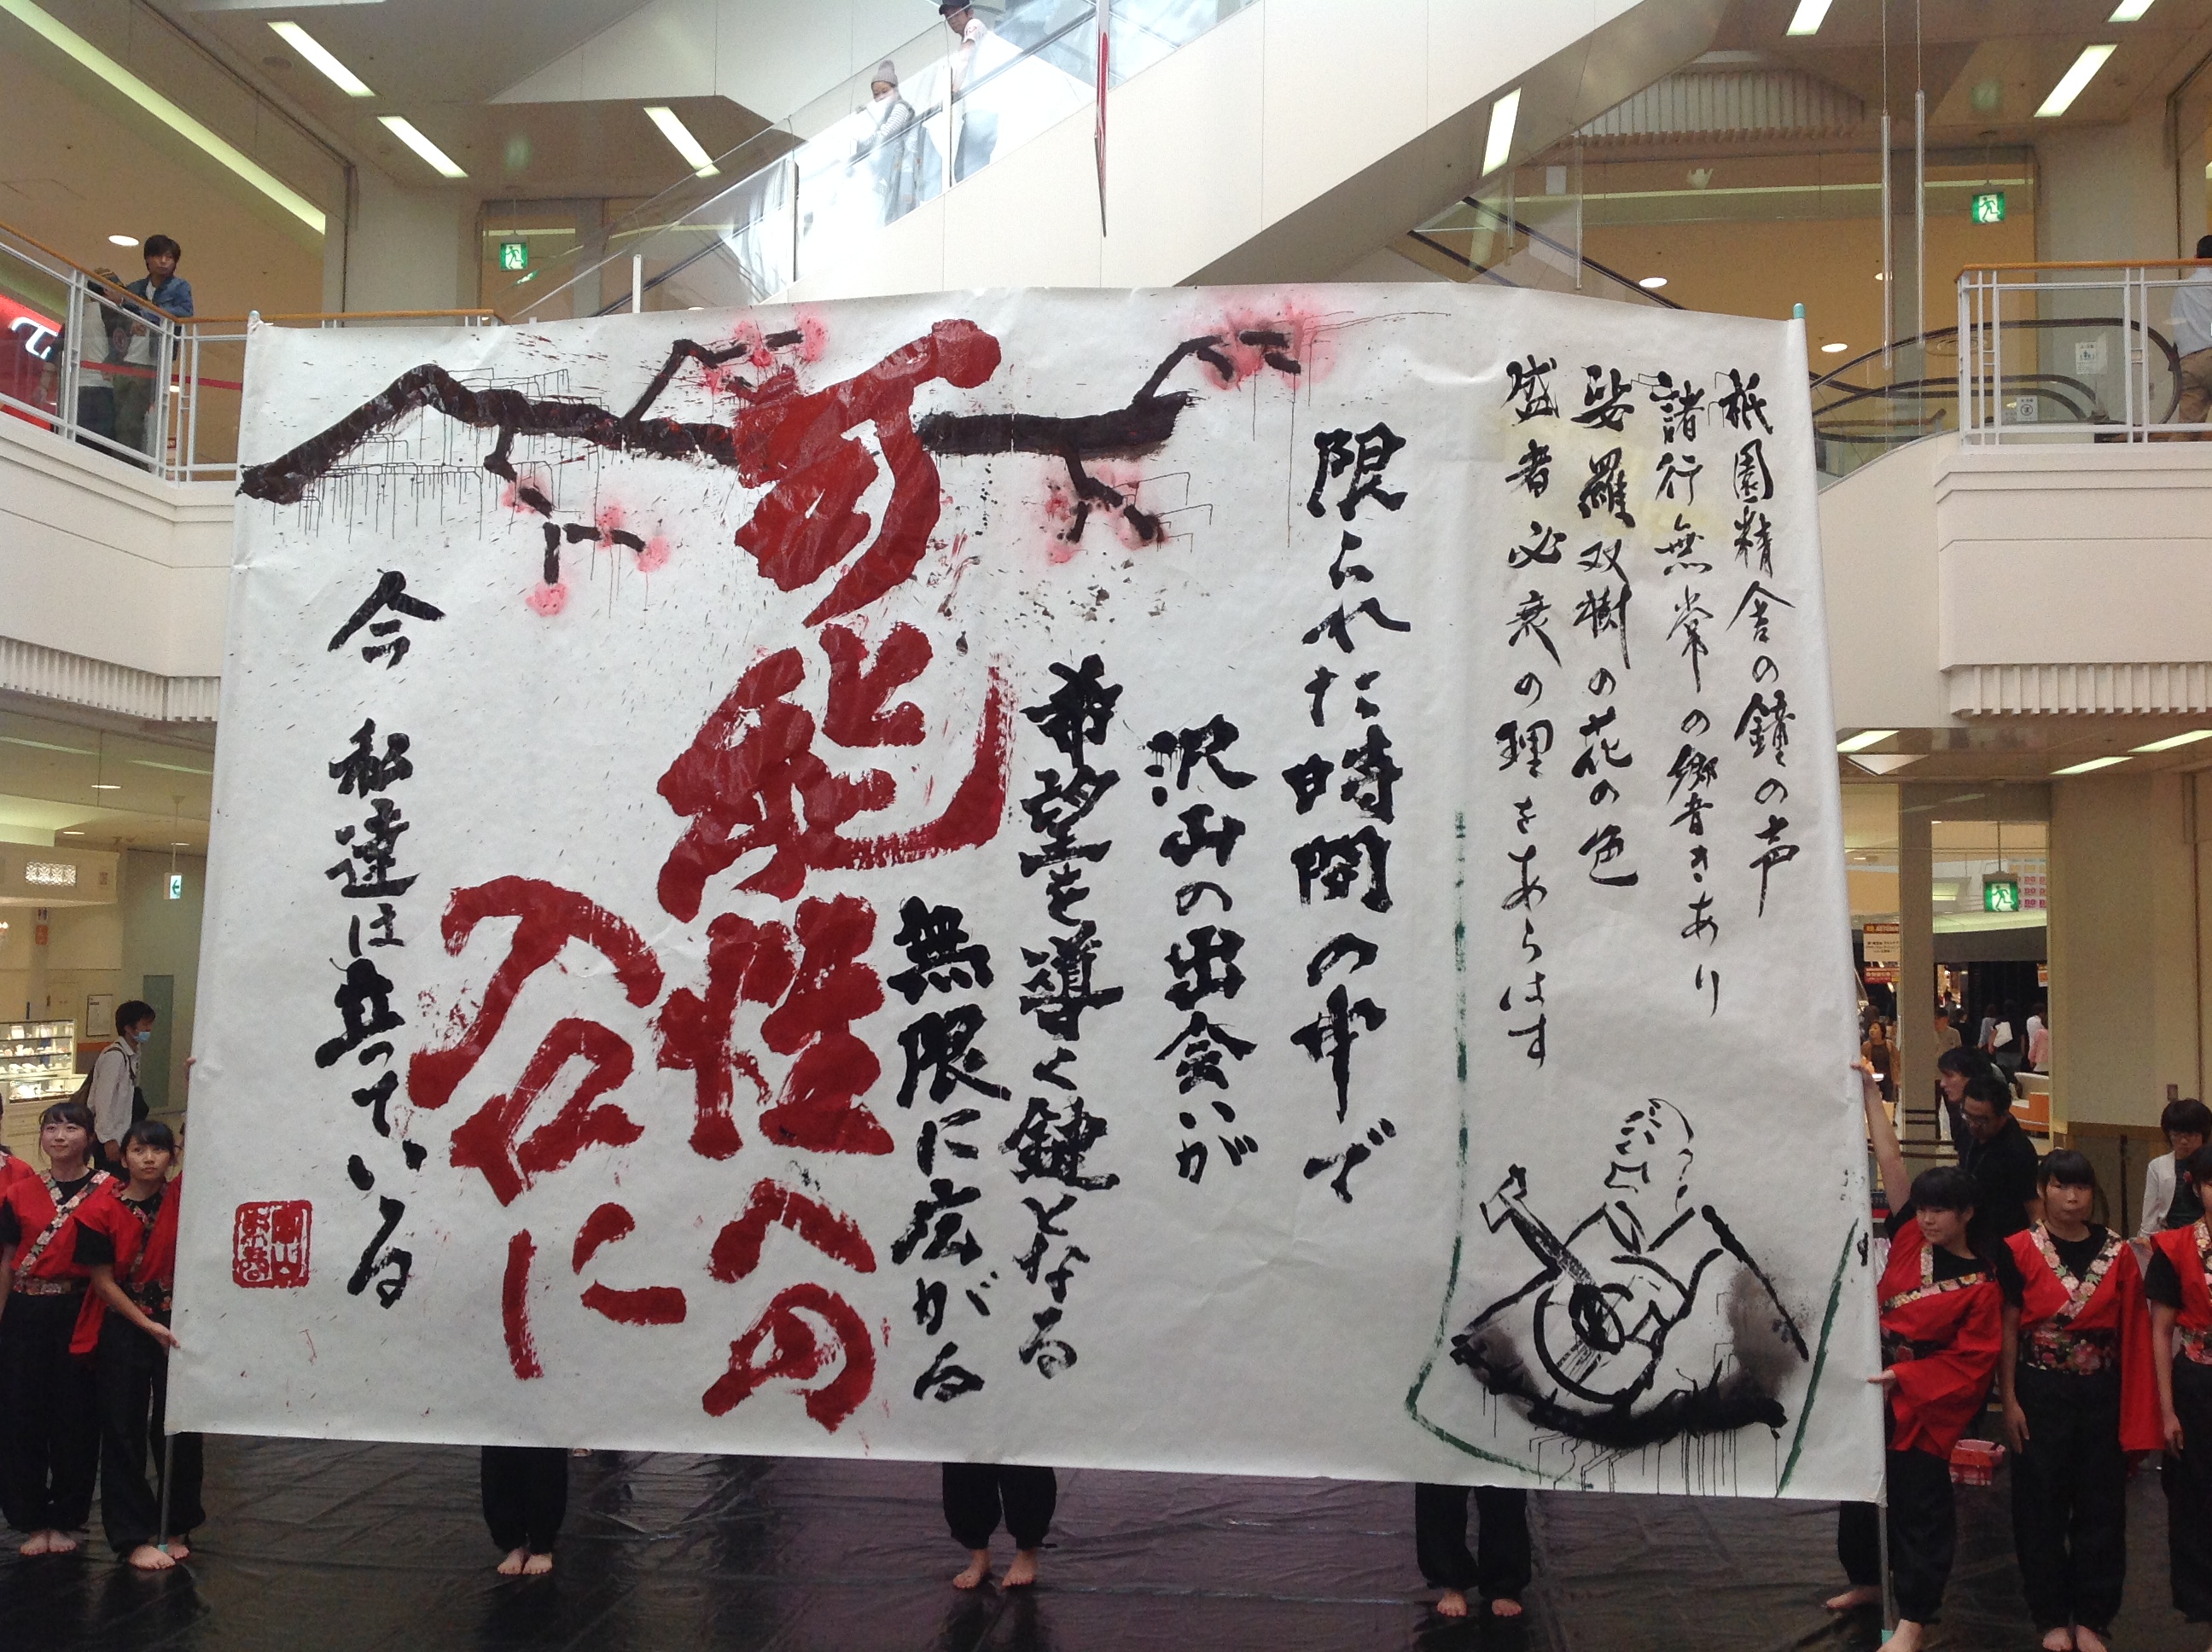 祇園精舎の鐘の声
諸行無常の響きあり
娑羅双樹の花の色
盛者必衰の理をあらはす
限られた時間の中で
沢山の出会いが
希望を導く鍵となる
無限に広がる
可能性への
入口に
今 私達は立っている